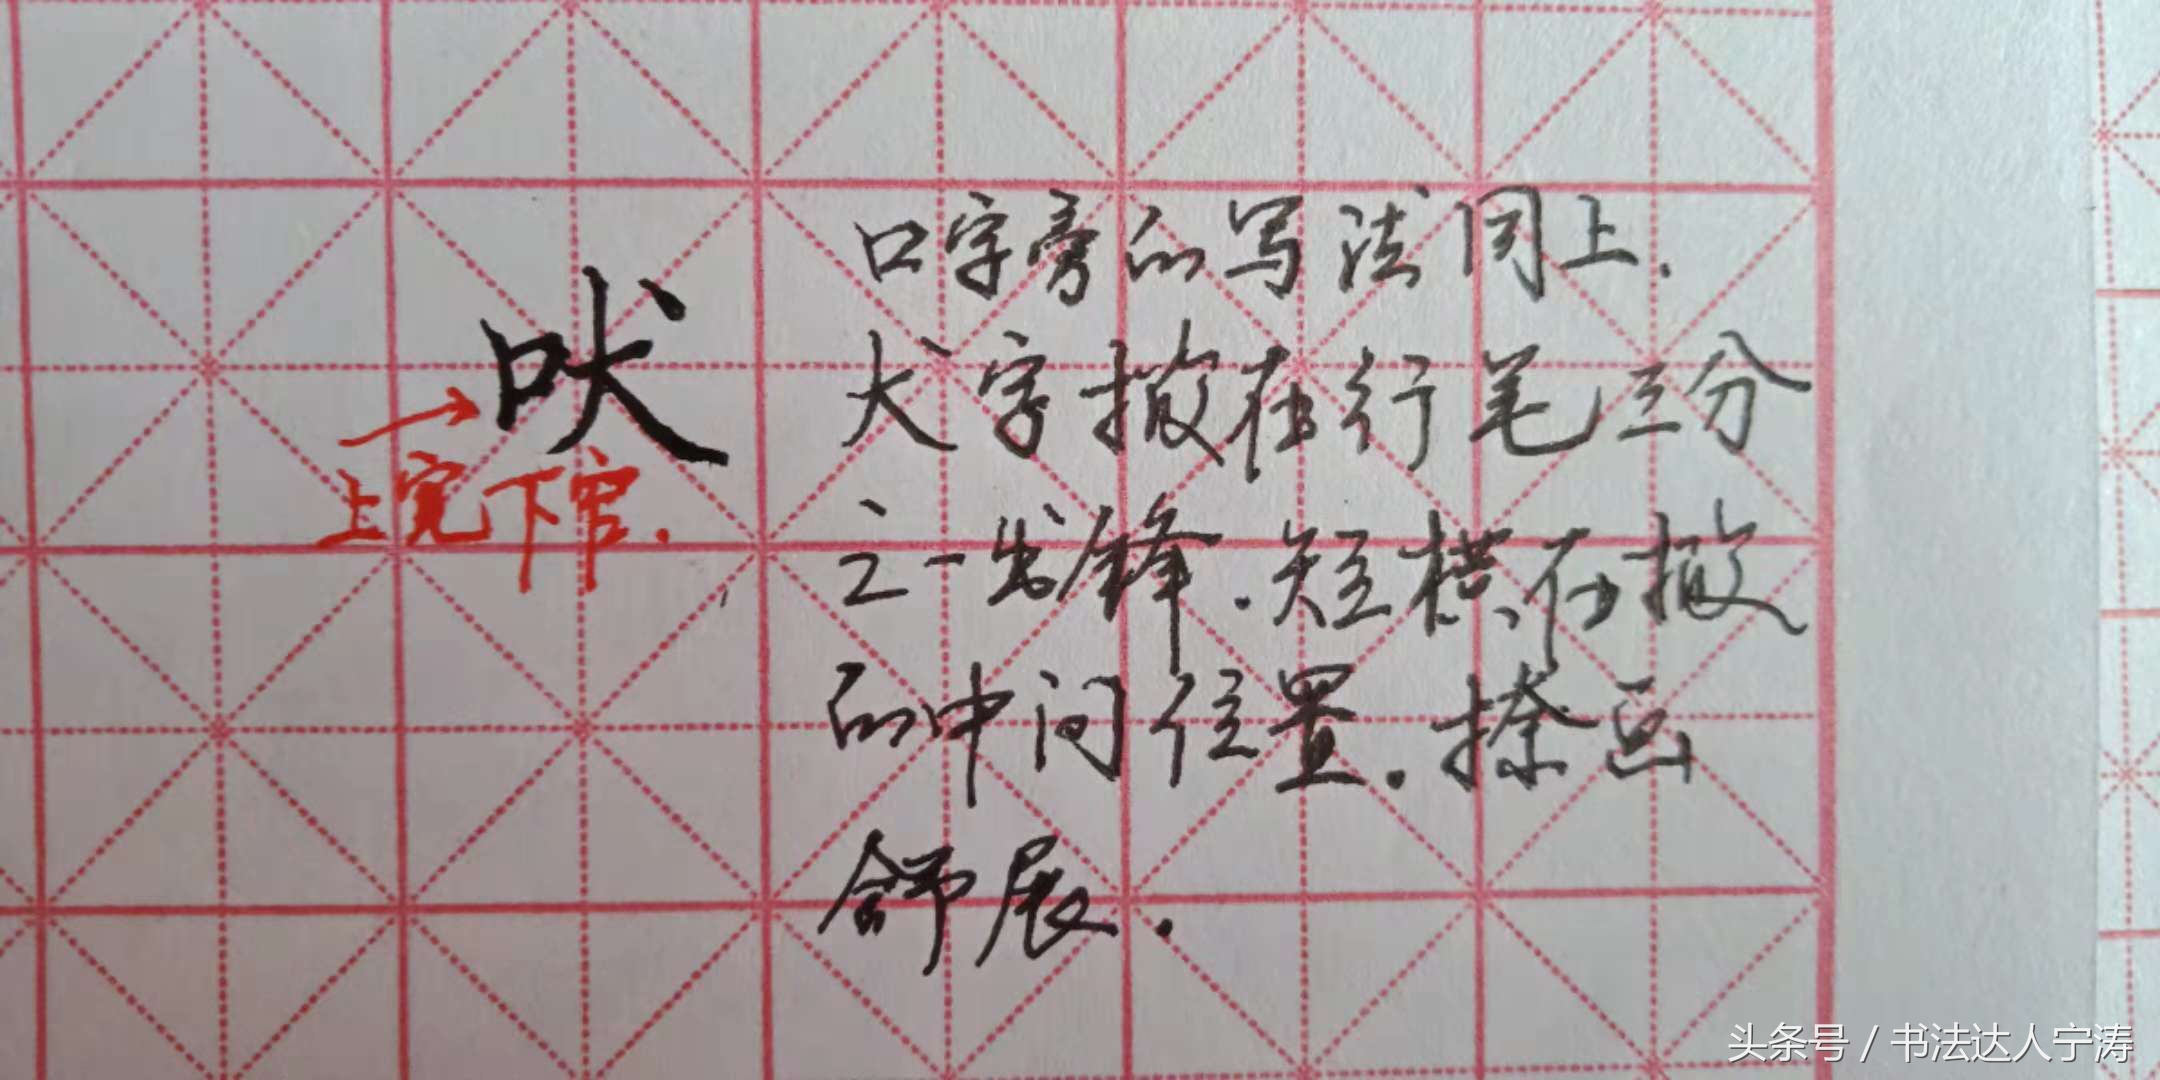 吠
上宽下窄.
口字旁的写法同上.
犬字撇在行笔三分
之一出锋.短横在撇
的中间位置.捺画
舒展.
头条号 / 书法达人宁涛